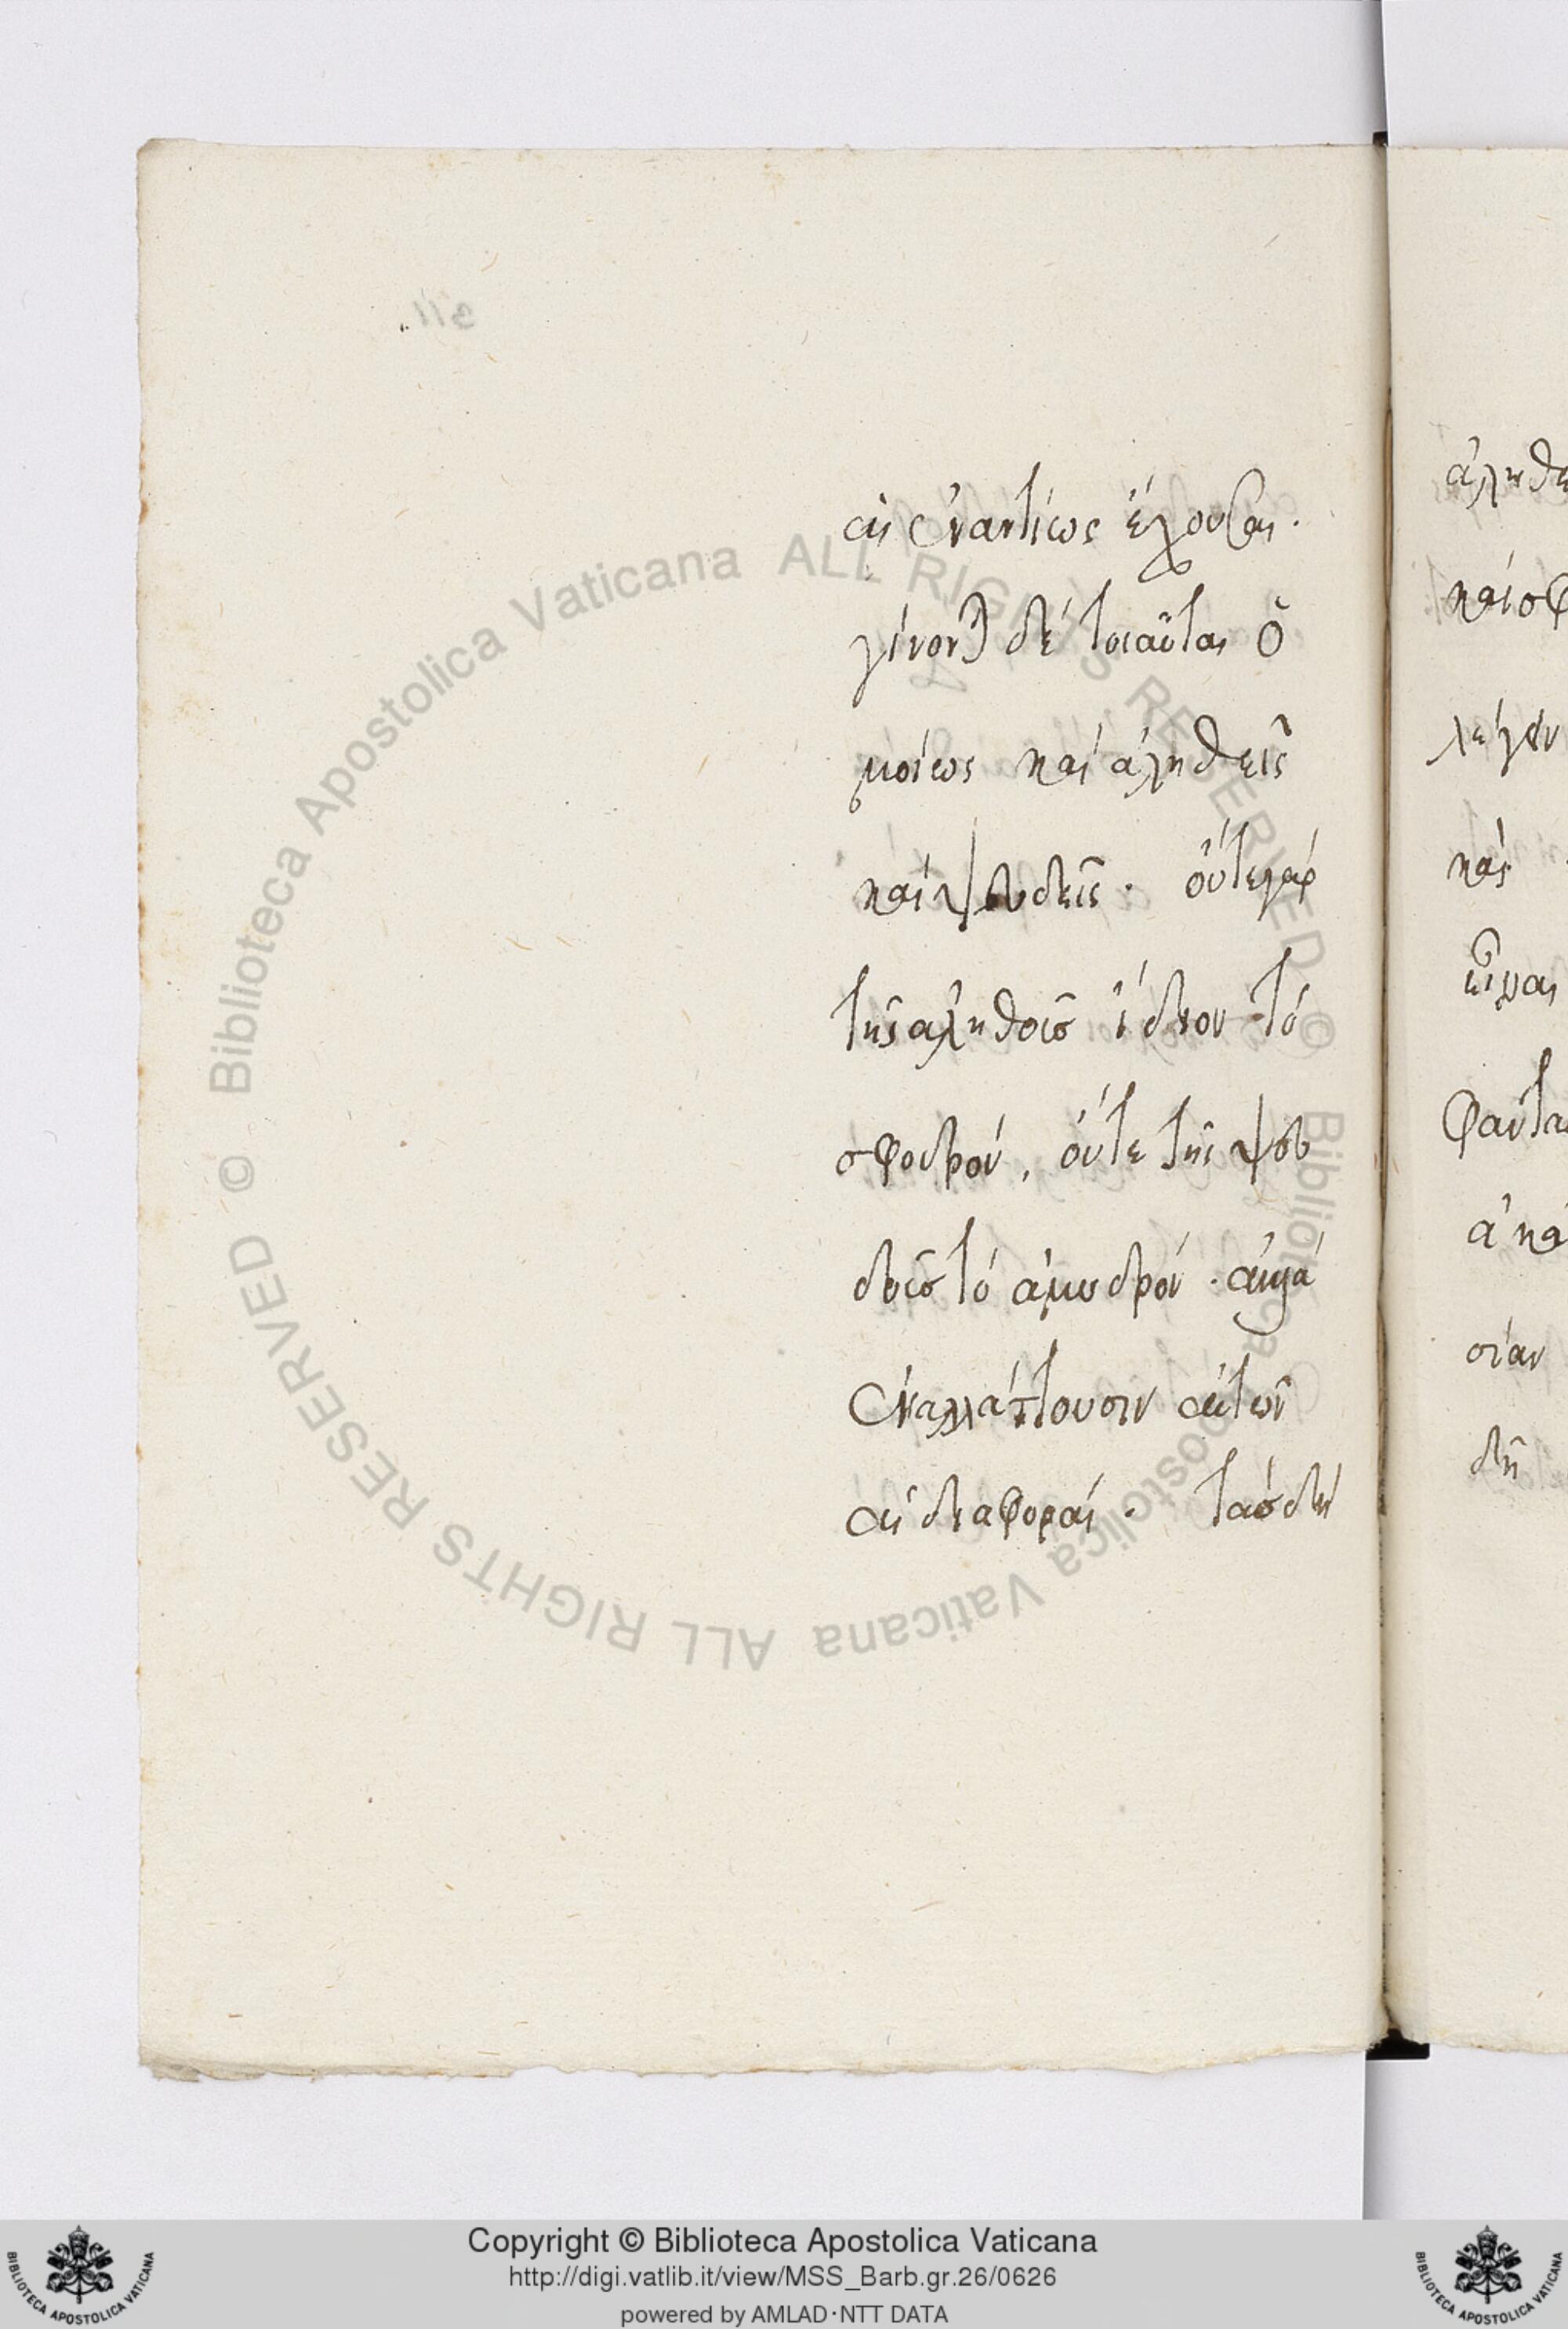 αἱ ἐναντίως ἔχουσαι.
γίνονται δὲ τοιαῦται ὁ
μοίως καὶ ἀληθεῖς
καὶ ψευδεῖς. οὔτε γὰρ
τῆς ἀληθοῦς ἴδιον τὸ
σφοδρόν, οὔτε τῆς ψευ
δοῦς τὸ ἀμυδρόν. ἀλλὰ
ἐναλλάττουσιν αὐτῶν
αἱ διαφοραί. τὰς δὴ
ἀληθε
καὶ σφ
λέγειν
κὰς
εἶναι
φαντα
ἀκα
σίαν
δὴ
© Biblioteca Apostolica Vaticana ALL RIGHTS RESERVED © Biblioteca Apostolica Vaticana ALL RIGHTS RESERVED
Copyright © Biblioteca Apostolica Vaticana
http://digi.vatlib.it/view/MSS_Barb.gr.26/0626
powered by AMLAD·NTT DATA
BIBLIOTECA APOSTOLICA VATICANA
BIBLIOTECA APOSTOLICA VATICANA